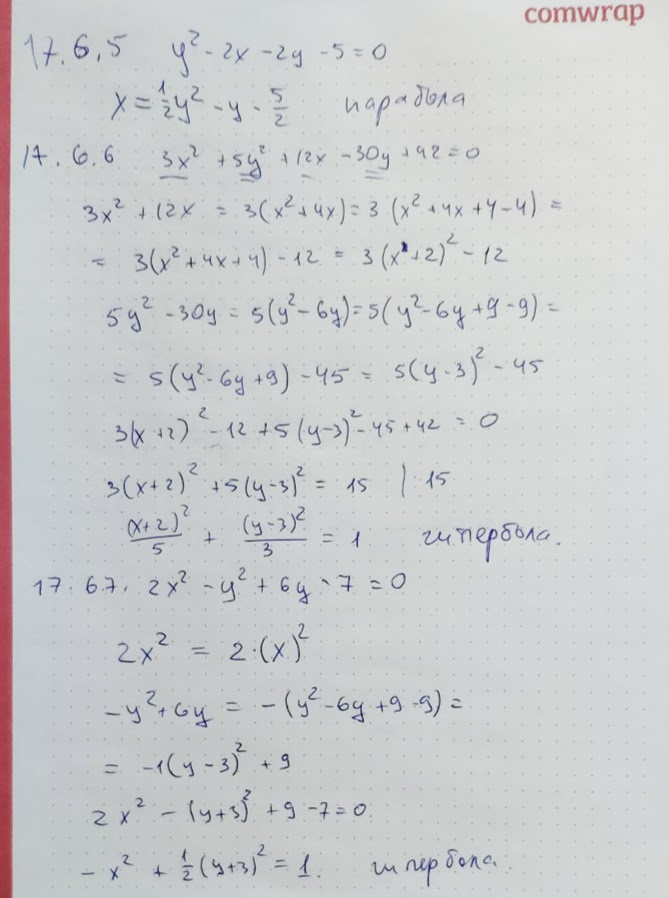 comwrap
17.6.5 y² - 2x - 2y - 5 = 0
x = 1/2 y² - y - 5/2 парабола
17.6.6 3x² + 5y² + 12x - 30y + 42 = 0
3x² + 12x = 3(x² + 4x) = 3(x² + 4x + 4 - 4) =
= 3(x² + 4x + 4) - 12 = 3(x + 2)² - 12
5y² - 30y = 5(y² - 6y) = 5(y² - 6y + 9 - 9) =
= 5(y² - 6y + 9) - 45 = 5(y - 3)² - 45
3(x + 2)² - 12 + 5(y - 3)² - 45 + 42 = 0
3(x + 2)² + 5(y - 3)² = 15 | : 15
(x + 2)²/5 + (y - 3)²/3 = 1 гипербола.
17.6.7. 2x² - y² + 6y - 7 = 0
2x² = 2·(x)²
-y² + 6y = -(y² - 6y + 9 - 9) =
= -1(y - 3)² + 9
2x² - (y + 3)² + 9 - 7 = 0
- x² + 1/2 (y + 3)² = 1. гипербола.